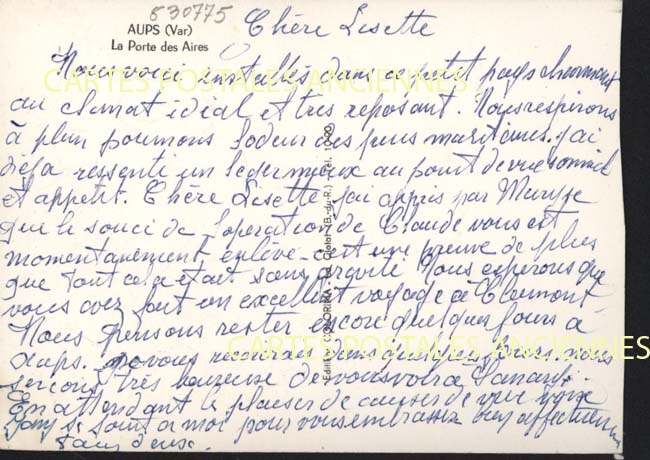 830775
AUPS (Var)
La Porte des Aires
Chère Lisette
Nous voici installés dans ce petit pays charmant
au climat idial et très reposant. Nous respirons
à plein poumons l'odeur des pins maritimes. j'ai
déja ressenti un leger mieux au point de vue sommeil
et appetit. Chère Lisette j'ai appris par Maryse
que le souci de l'operation de Claude vous est
momentanément enlevé. C'est une preuve de plus
que tout cela etait sans gravité. Nous esperons que
vous avez fait un excellent voyage à Clermont.
Nous pensons rester encore quelques jours à
Aups. vous quelques jours, nous
serions très heureuse de vous voir à Sanary.
En attendant le plaisir de causer de vive voix
se joint a moi pour vous embrasser bien affectueusement
tous deux.
Editions COLORIMA - La Ciotat (B.-du-R.)
CARTES POSTALES ANCIENNES
CARTES POSTALES ANCIENNES